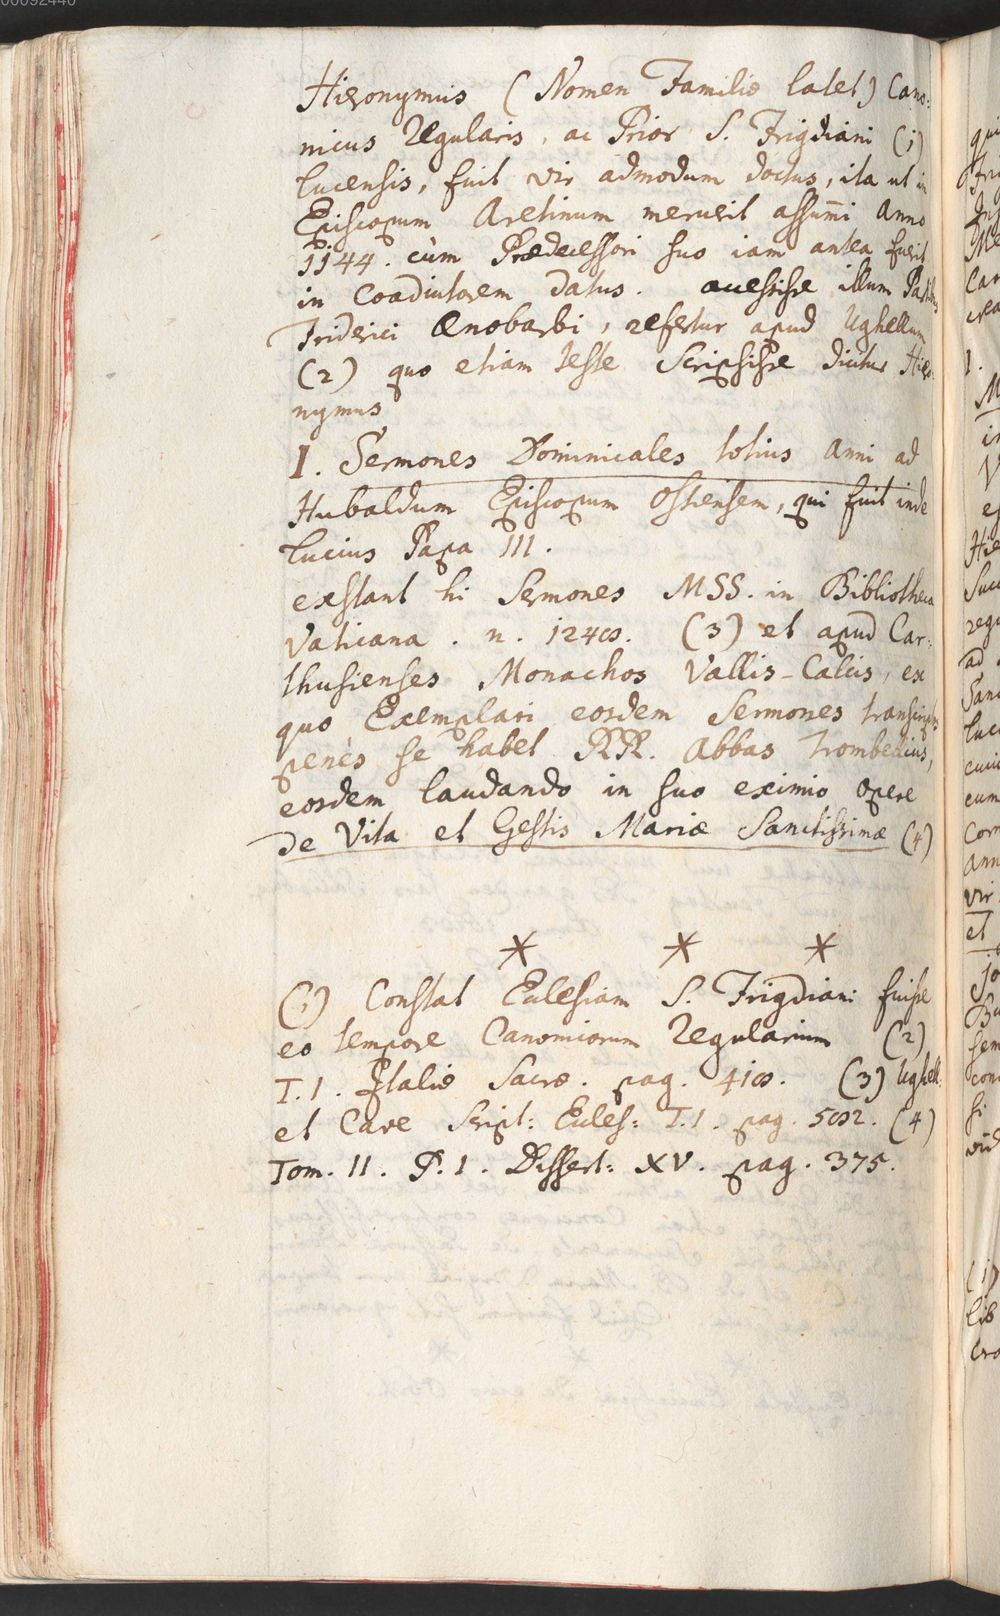 00092440
Hieronymus (Nomen Familiæ latet) Cano:
nicus Regularis, ac Prior S. Frigdiani (1)
Lucensis, fuit vir admodum doctus, ita ut in
Episcopum Aretinum meruerit assumi Anno
1144. cùm Prædecessori suo iam antea fuerit
in Coadiutorem datus. avesisse illum Partibus
Friderici Ænobarbi, refertur apud Ughellum
(2) quo etiam teste Scripsisse dicitur Hiero
nymus
I. Sermones Dominicales totius Anni ad
Hubaldum Episcopum Ostiensem, qui fuit inde
Lucius Papa III.
exstant hi Sermones MSS. in Bibliotheca
Vaticana. n. 1240. (3) et apud Car:
thusienses Monachos Vallis-Calcis, ex
quo Exemplari eosdem Sermones transcriptos
penès se habet RR. Abbas Trombellius,
eosdem laudando in suo eximio opere
de Vita et Gestis Mariæ Sanctissimæ (4)
* * *
(1) Constat Ecclesiam S. Frigdiani fuisse
eo tempore Canonicorum Regularium (2)
T. I. Italiæ Sacræ. pag. 410. (3) Ughell.
et Cave Script: Eccles: T. I. pag. 502. (4)
Tom. II. P. I. Dissert: XV. pag. 375.